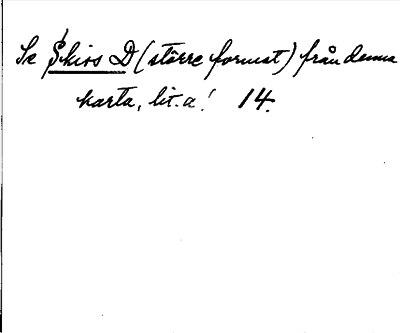 Se Skiss D (större format) från denna
karta, lit. a! 14.